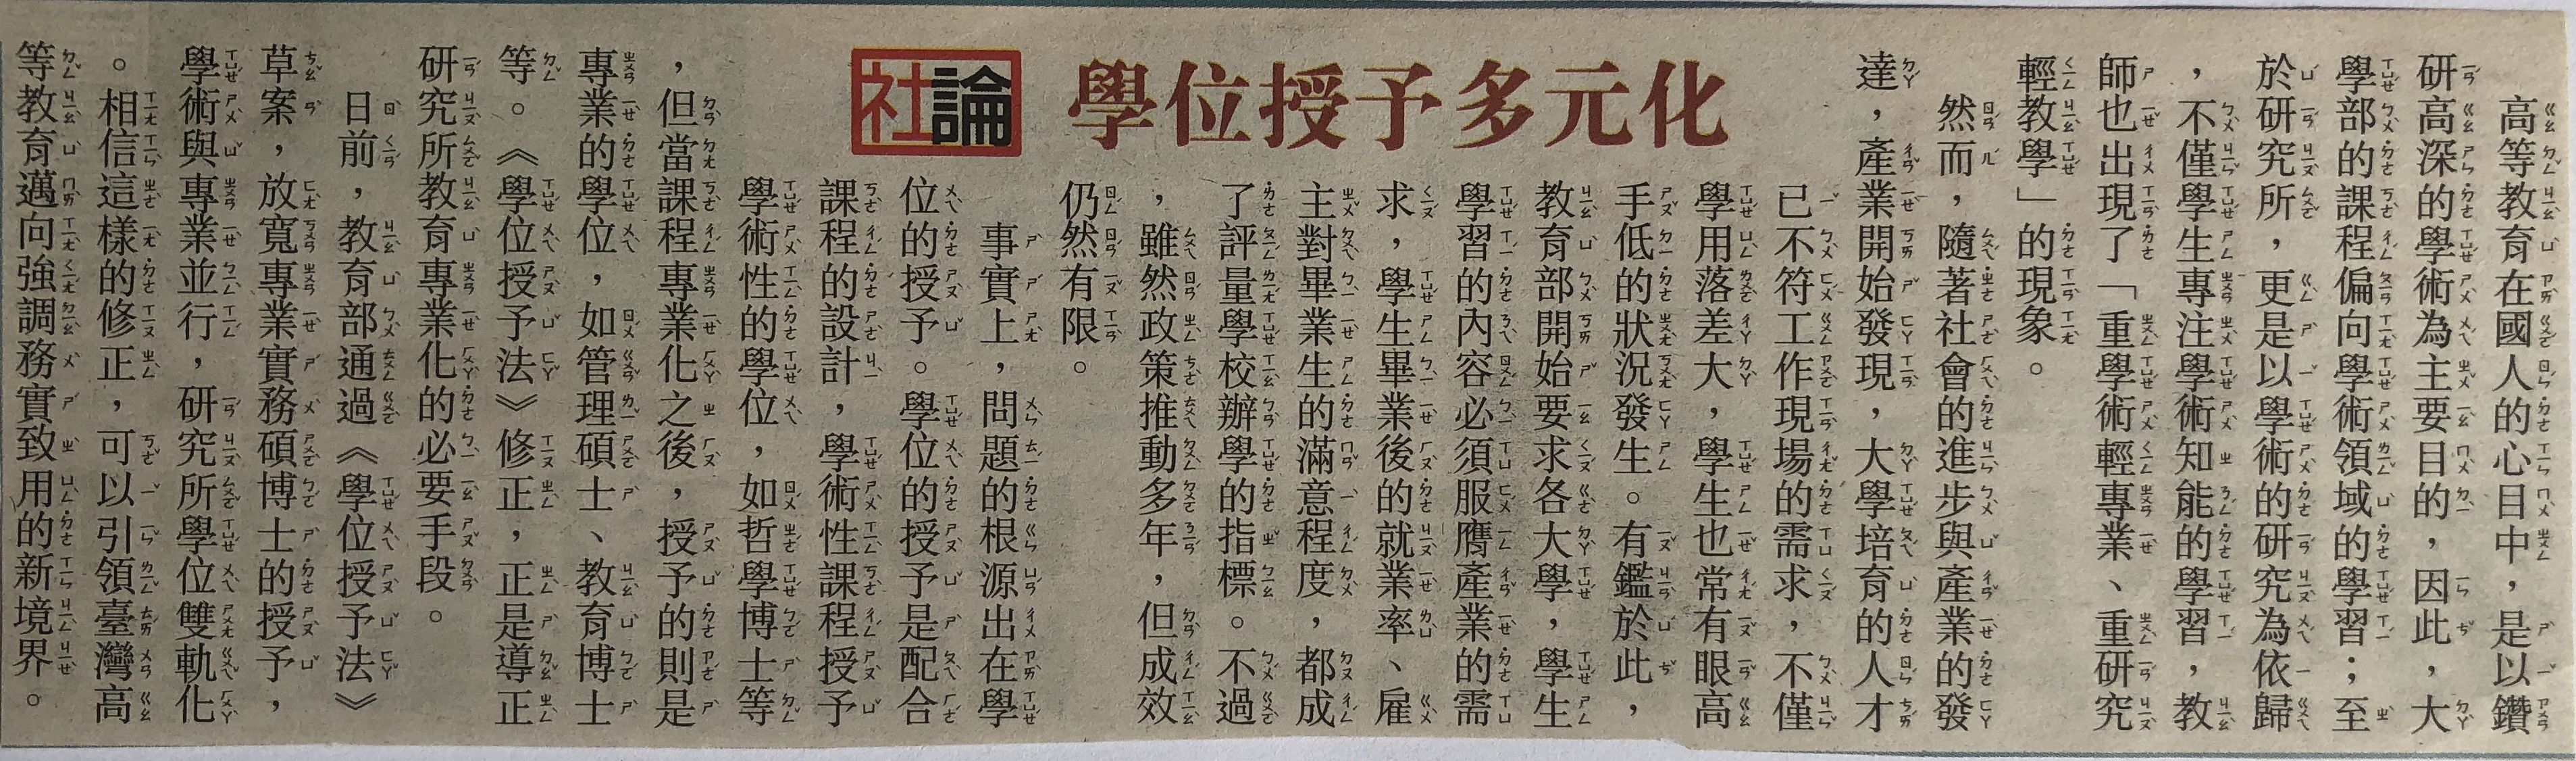 學位授予多元化
社論
高等教育在國人的心目中，是以鑽
研高深的學術為主要目的，因此，大
學部的課程偏向學術領域的學習；至
於研究所，更是以學術的研究為依歸
，不僅學生專注學術知能的學習，教
師也出現了「重學術輕專業、重研究
輕教學」的現象。
然而，隨著社會的進步與產業的發
達，產業開始發現，大學培育的人才
已不符工作現場的需求，不僅
學用落差大，學生也常有眼高
手低的狀況發生。有鑑於此，
教育部開始要求各大學，學生
學習的內容必須服膺產業的需
求，學生畢業後的就業率、雇
主對畢業生的滿意程度，都成
了評量學校辦學的指標。不過
，雖然政策推動多年，但成效
仍然有限。
事實上，問題的根源出在學
位的授予。學位的授予是配合
課程的設計，學術性課程授予
學術性的學位，如哲學博士等
，但當課程專業化之後，授予的則是
專業的學位，如管理碩士、教育博士
等。《學位授予法》修正，正是導正
研究所教育專業化的必要手段。
日前，教育部通過《學位授予法》
草案，放寬專業實務碩博士的授予，
學術與專業並行，研究所學位雙軌化
。相信這樣的修正，可以引領臺灣高
等教育邁向強調務實致用的新境界。